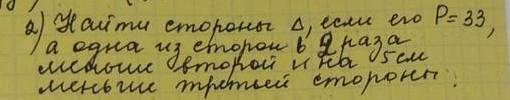 2) Найти стороны Δ, если его P=33,
а одна из сторон в 2 раза
меньше второй и на 5см
меньше третьей стороны.